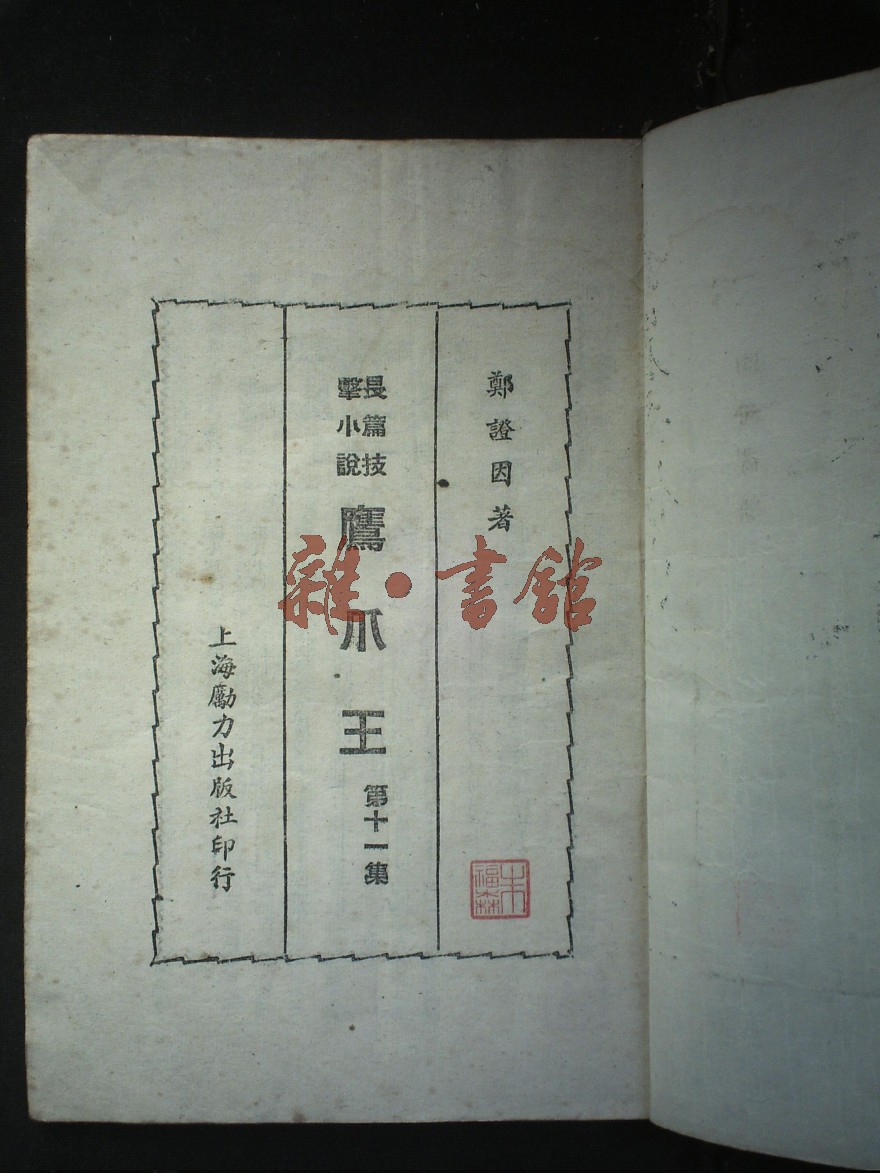 鄭證因著
長篇技
擊小說
鷹爪王
第十一集
上海勵力出版社印行
雜·書館
朱福森